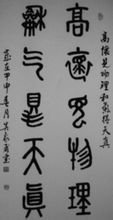 高懷見物理和氣得天真
高褱見物理
龢气得天真
歲在甲申春月